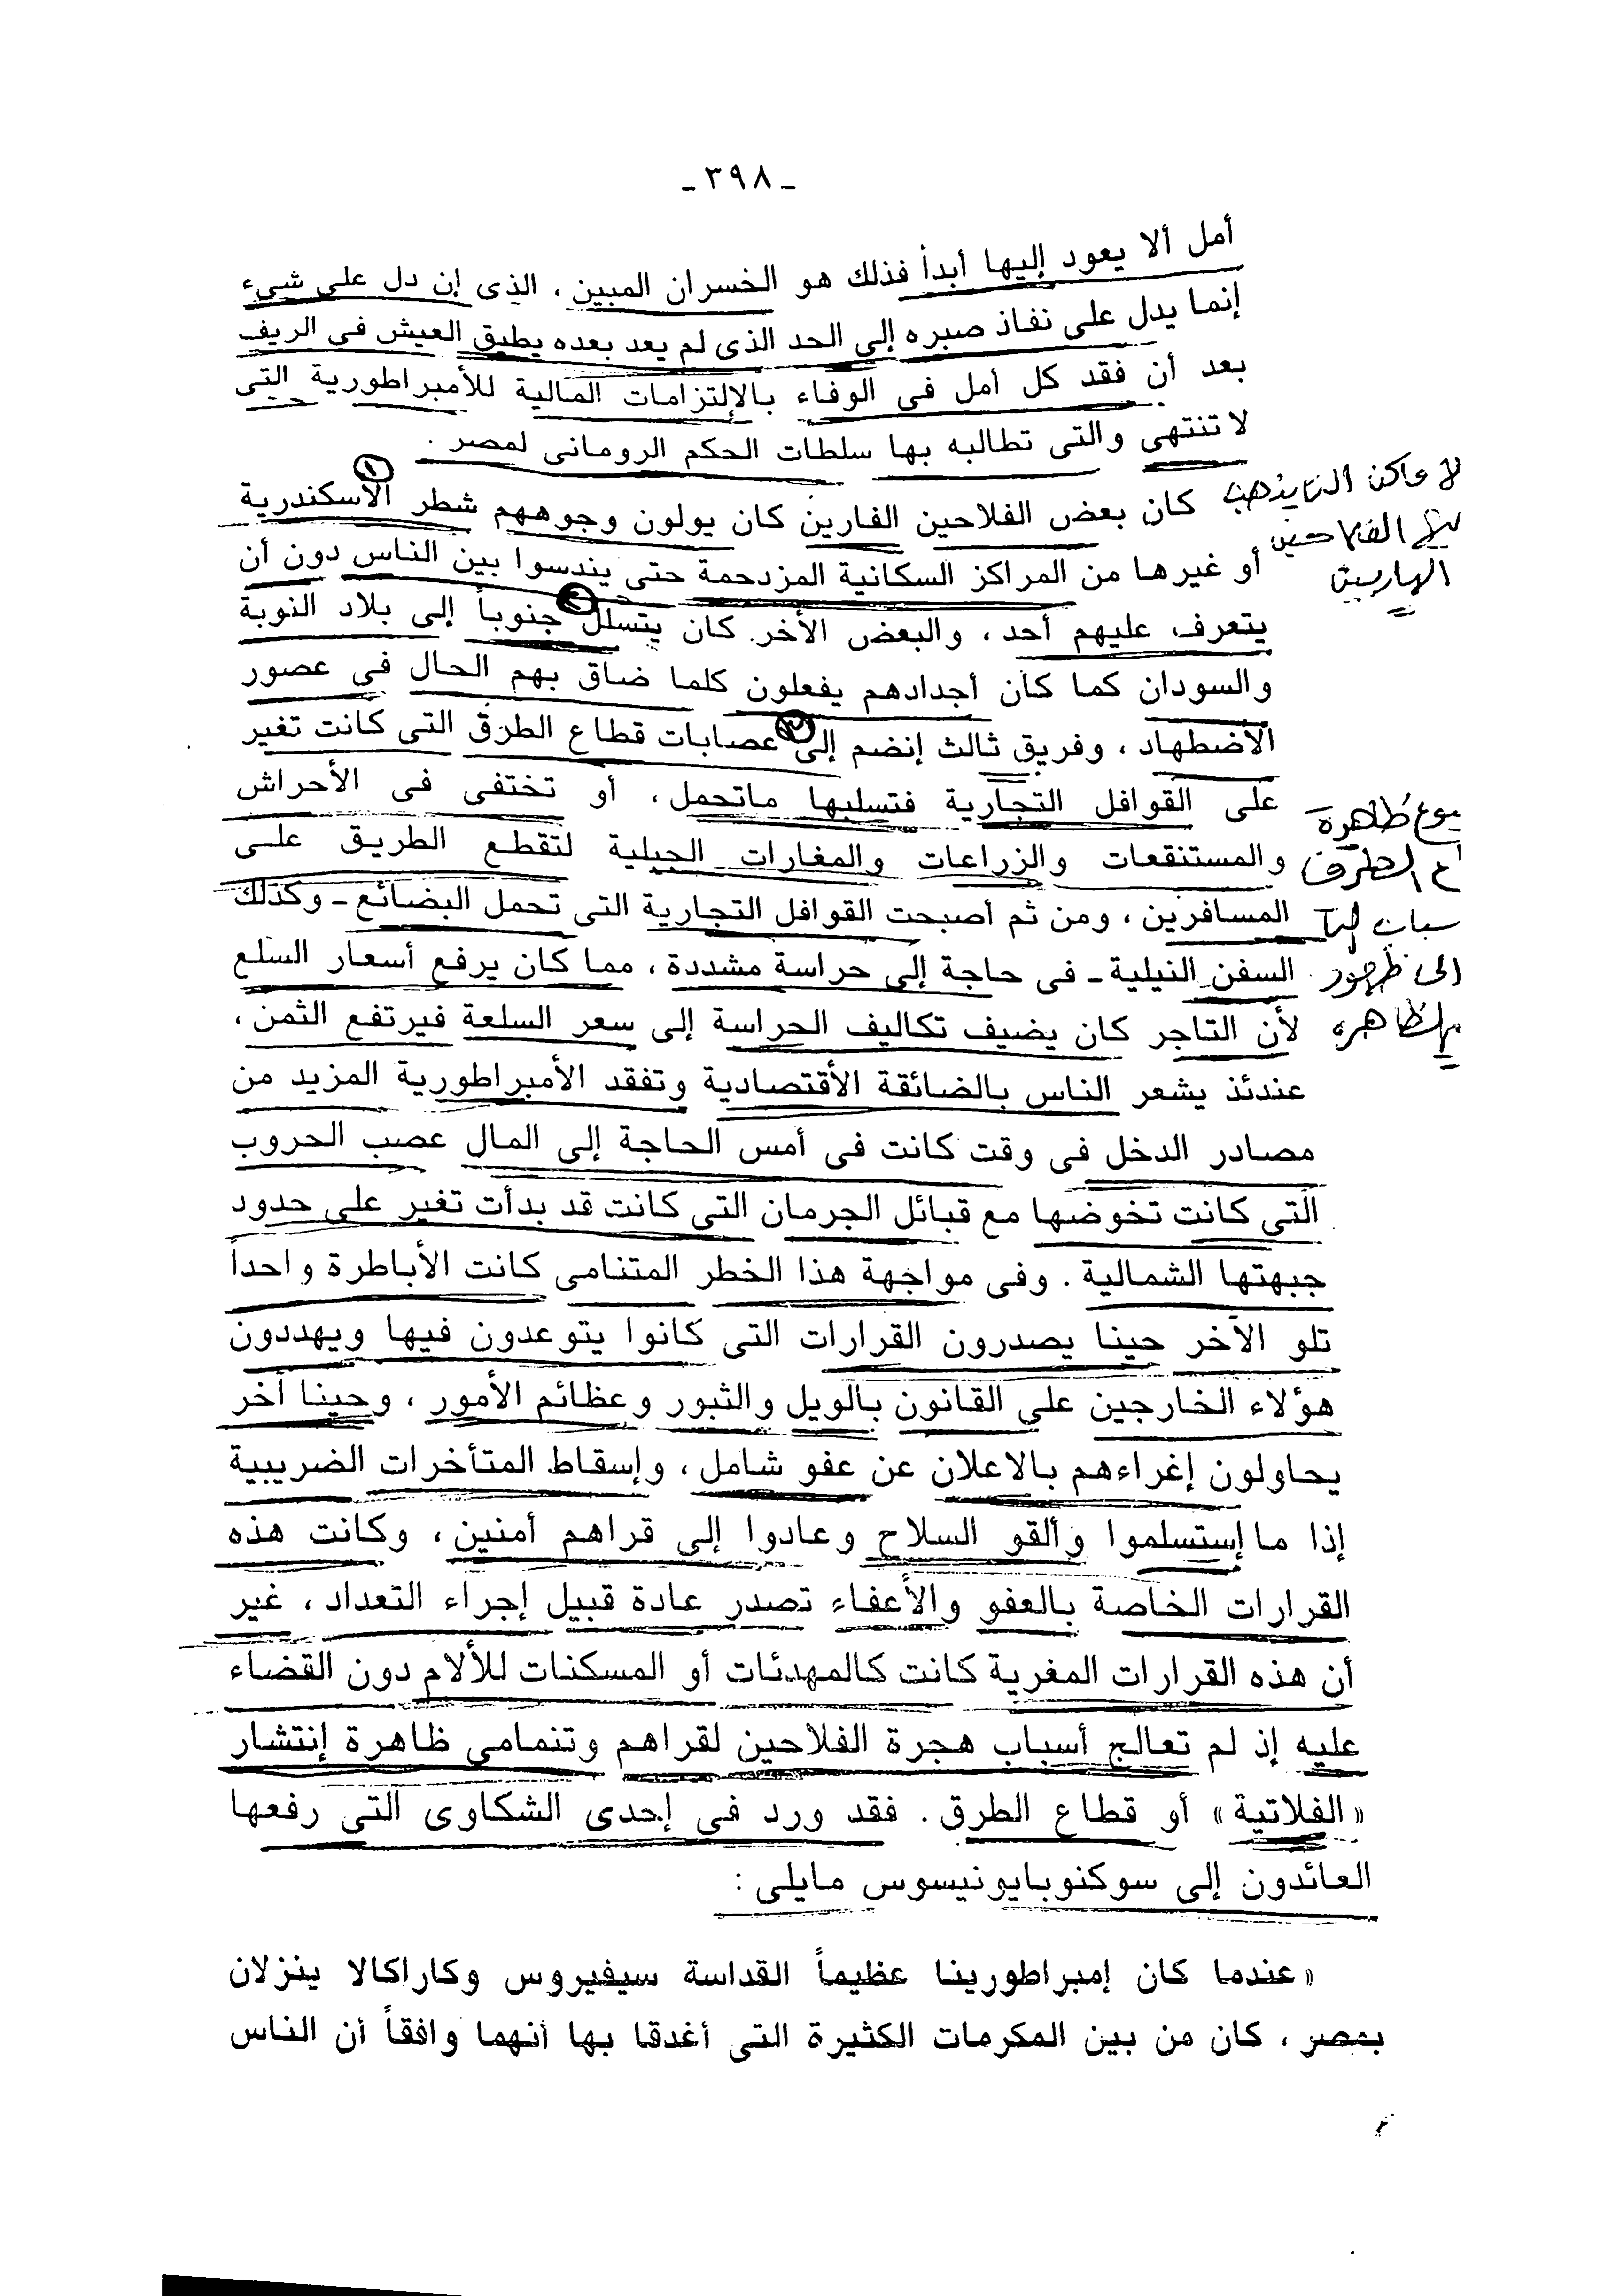 ـ ٣٩٨ ـ
أمل ألا يعود إليها أبدأ فذلك هو الخسران المبين ، الذى إن دل على شىء
إنما يدل على نفاذ صبره إلى الحد الذى لم يعد بعده يطيق العيش فى الريف
بعد أن فقد كل أمل فى الوفاء بالإلتزامات المالية للأمبراطورية التى
لا تنتهى والتى تطالبه بها سلطات الحكم الرومانى لمصر .
كان بعض الفلاحين الفارين كان يولون وجوههم شطر الأسكندرية
أو غيرها من المراكز السكانية المزدحمة حتى يندسوا بين الناس دون أن
يتعرف عليهم أحد ، والبعض الأخر كان يتسلل جنوباً إلى بلاد النوبة
والسودان كما كان أجدادهم يفعلون كلما ضاق بهم الحال فى عصور
الأضطهاد ، وفريق ثالث إنضم إلى عصابات قطاع الطرق التى كانت تغير
على القوافل التجارية فتسلبها ماتحمل ، أو تختفى فى الأحراش
والمستنقعات والزراعات والمغارات الجبلية لتقطع الطريق على
المسافرين ، ومن ثم أصبحت القوافل التجارية التى تحمل البضائع ـ وكذلك
السفن النيلية ـ فى حاجة إلى حراسة مشددة ، مما كان يرفع أسعار السلع
لأن التاجر كان يضيف تكاليف الحراسة إلى سعر السلعة فيرتفع الثمن ،
عندئذ يشعر الناس بالضائقة الأقتصادية وتفقد الأمبراطورية المزيد من
مصادر الدخل فى وقت كانت فى أمس الحاجة إلى المال عصب الحروب
التى كانت تخوضها مع قبائل الجرمان التى كانت قد بدأت تغير على حدود
جبهتها الشمالية . وفى مواجهة هذا الخطر المتنامى كانت الأباطرة واحداً
تلو الآخر حينا يصدرون القرارات التى كانوا يتوعدون فيها ويهددون
هؤلاء الخارجين على القانون بالويل والثبور وعظائم الأمور ، وحينا أخر
يحاولون إغراءهم بالاعلان عن عفو شامل ، وإسقاط المتأخرات الضريبية
إذا ما إستسلموا وألقو السلاح وعادوا إلى قراهم أمنين ، وكانت هذه
القرارات الخاصة بالعفو والأعفاء تصدر عادة قبيل إجراء التعداد ، غير
أن هذه القرارات المغرية كانت كالمهدئات أو المسكنات للألام دون القضاء
عليه إذ لم تعالج أسباب هجرة الفلاحين لقراهم وتنمامى ظاهرة إنتشار
« الفلاتية » أو قطاع الطرق . فقد ورد فى إحدى الشكاوى التى رفعها
العائدون إلى سوكنوبايونيسوس مايلى :
« عندما كان إمبراطورينا عظيماً القداسة سيفيروس وكاراكالا ينزلان
بمصر ، كان من بين المكرمات الكثيرة التى أغدقا بها أنهما وافقاً أن الناس
الفلاحين
الهاربين
ظاهرة
الى ظهور